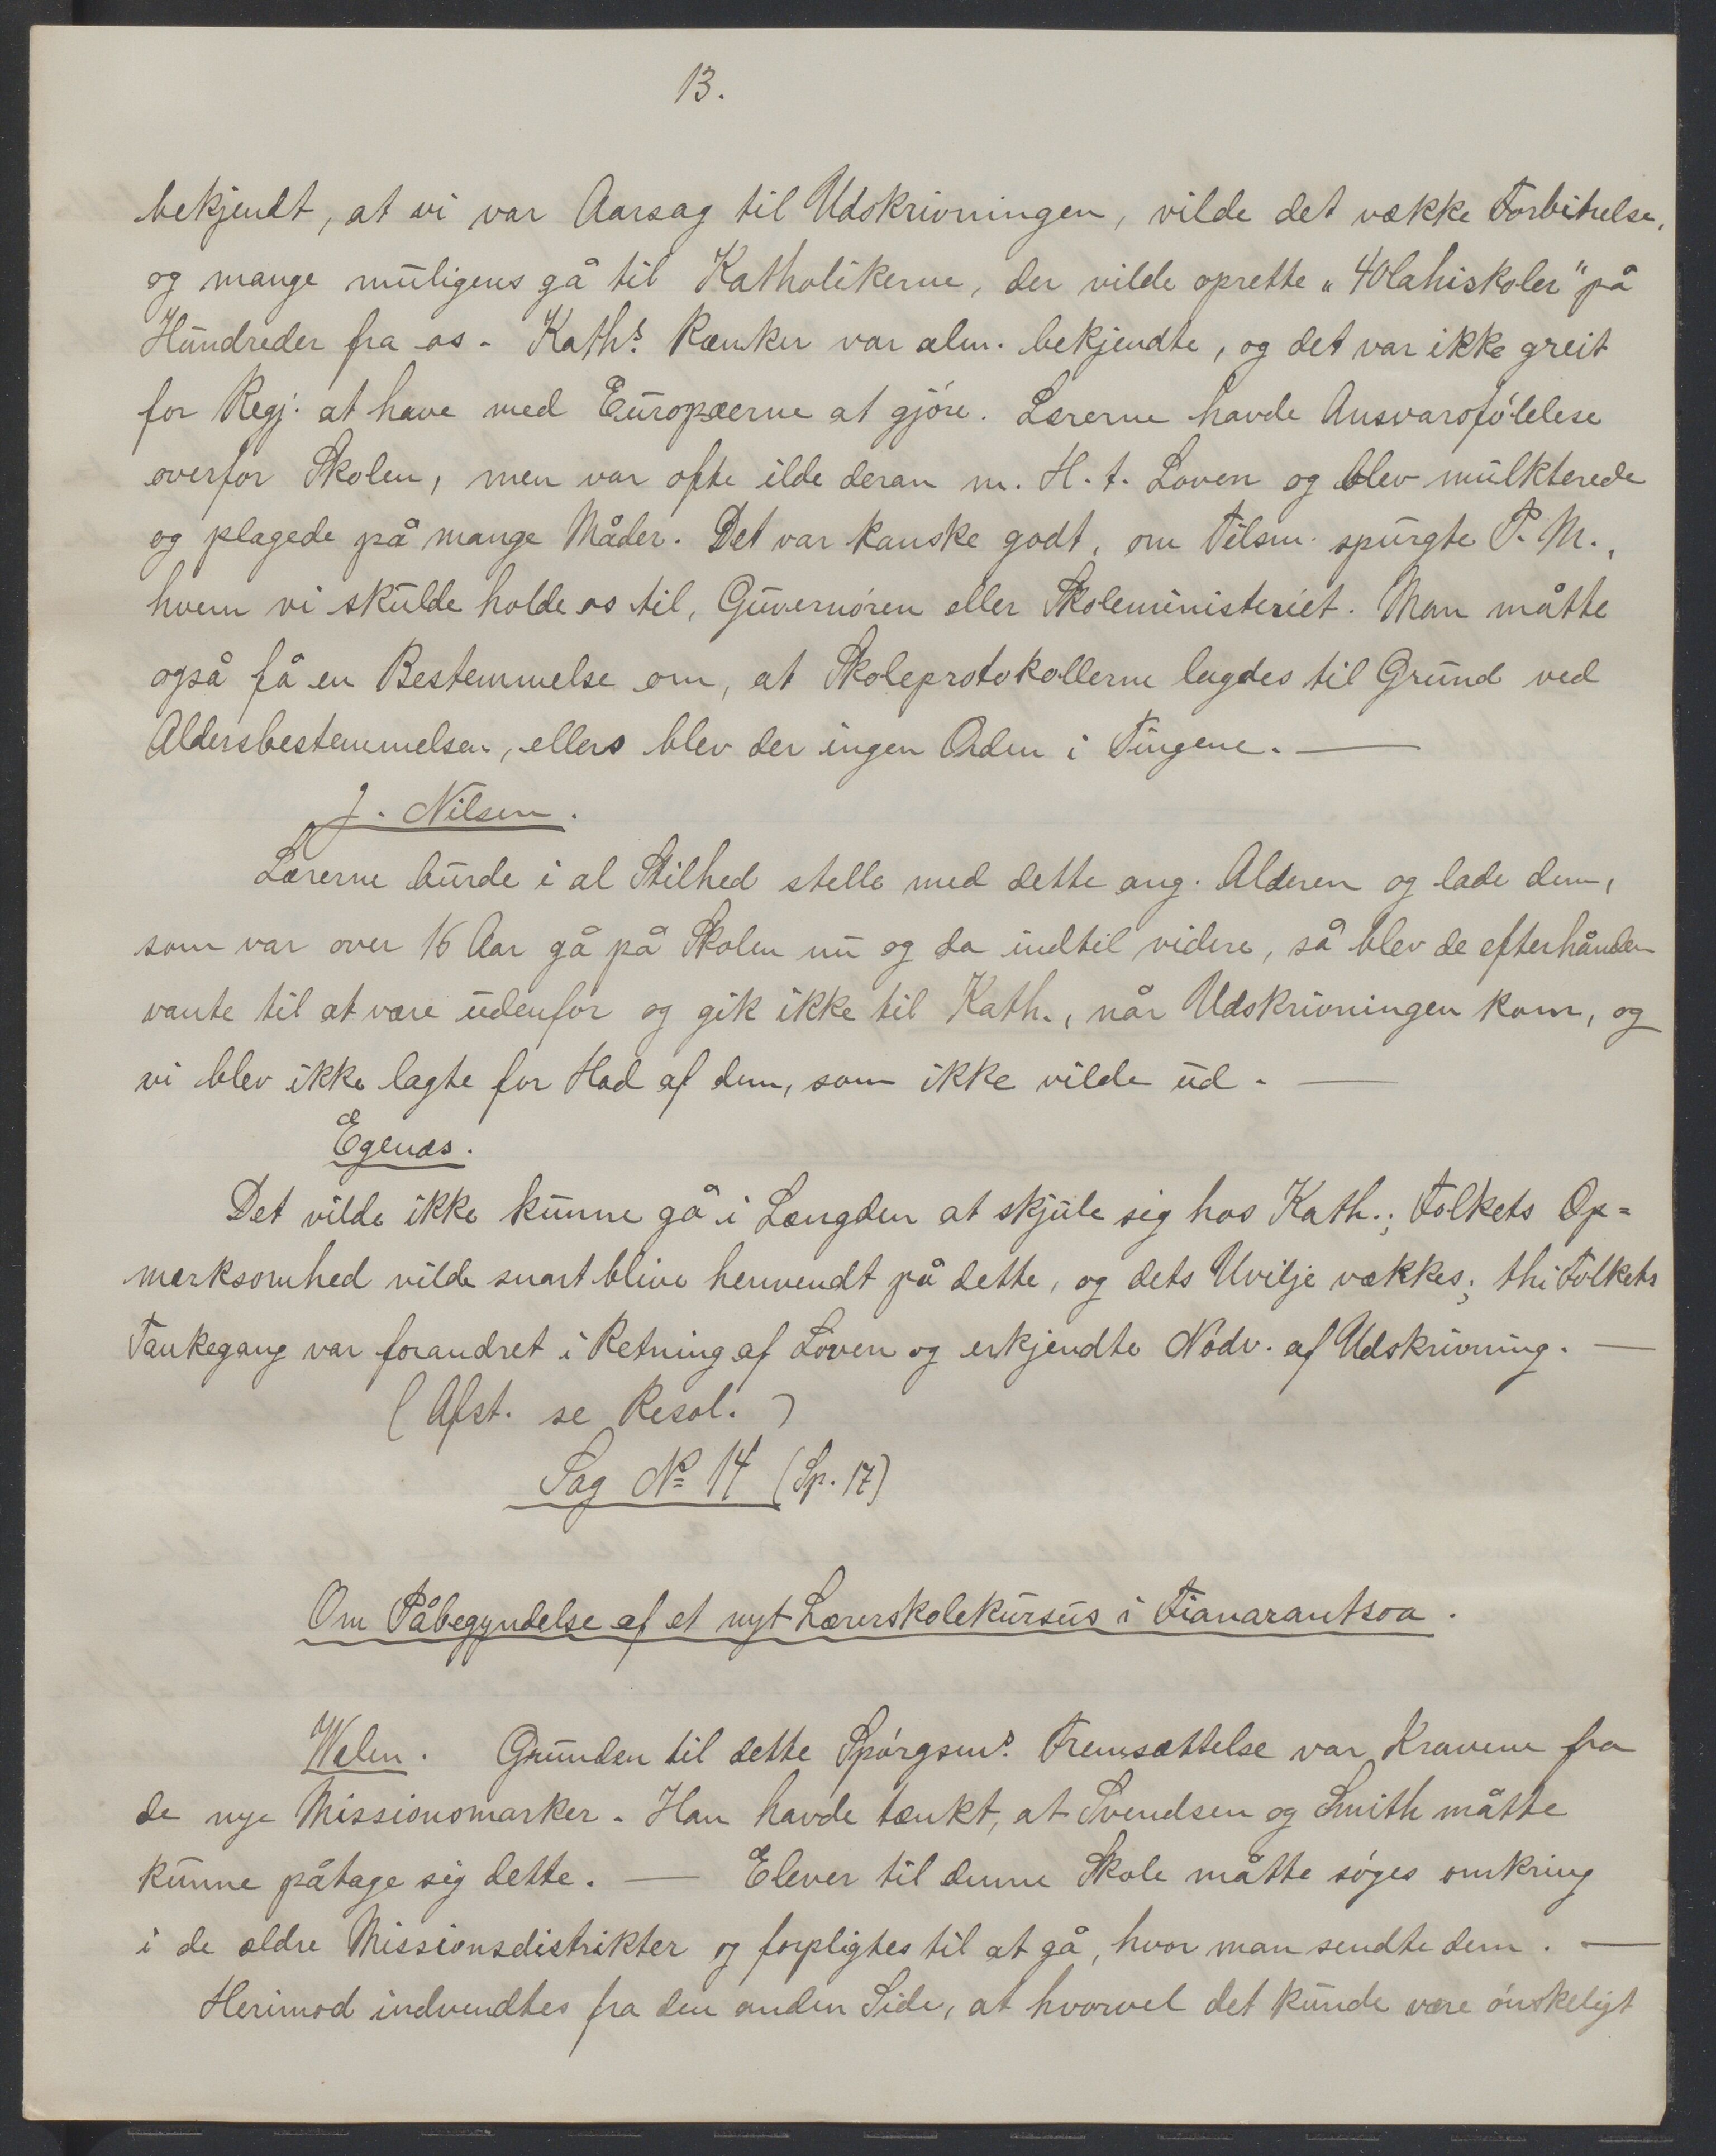 13.
bekjendt, at vi var Aarsag til Udskrivningen, vilde det vække Forbitrelse,
og mange muligens gå til Katholikerne, der vilde oprette „40lahiskoler" på
Hundreder fra os. Kaths. Rænker var alm. bekjendte, og det var ikke greit
for Regj. at have med Europæerne at gjöre. Lærerne havde Ansvarsfölelese
overfor Skolen, men var ofte ilde deran m. H. t. Loven og blev mulkterede
og plagede på mange Måder. Det var kanske godt, om Tilsm. spurgte P. M.,
hvem vi skulde holde os til, Guvernören eller Skoleministeriet. Man måtte
også få en Bestemmelse om, at Skoleprotokollerne lagdes til Grund ved
Aldersbestemmelsen, ellers blev der ingen Orden i Tingene. —
J. Nilsen.
Lærerne burde i al Stilhed stelle med dette ang. Alderen og lade dem,
som var over 16 Aar gå på Skolen nu og da indtil videre, så blev de efterhånden
vante til at være udenfor og gik ikke til Kath., når Udskrivningen kom, og
vi blev ikke lagte for Had af dem, som ikke vilde ud. —
Egenæs.
Det vilde ikke kunne gå i Længden at skjule sig hos Kath.; Folkets Op=
mærksomhed vilde snart blive henvendt på dette, og dets Uvilje vækkes; thi Folkets
Tankegang var forandret i Retning af Loven og erkjendte Nödv. af Udskrivning. —
(Afst. se Resol.)
Sag No 14 (Sp. 17)
Om Påbegyndelse af et nyt Lærerskolekursus i Fianarantsoa.
Wælen. Grunden til dette Spörgsms. Fremsættelse var Kravene fra
de nye Missionsmarker. Han havde tænkt, at Svendsen og Smith måtte
kunne påtage sig dette. — Elever til denne Skole måtte söges omkring
i de ældre Missionsdistrikter og forpligtes til at gå, hvor man sendte dem. —
Herimod indvendtes fra den anden Side, at hvorvel det kunde være önskeligt